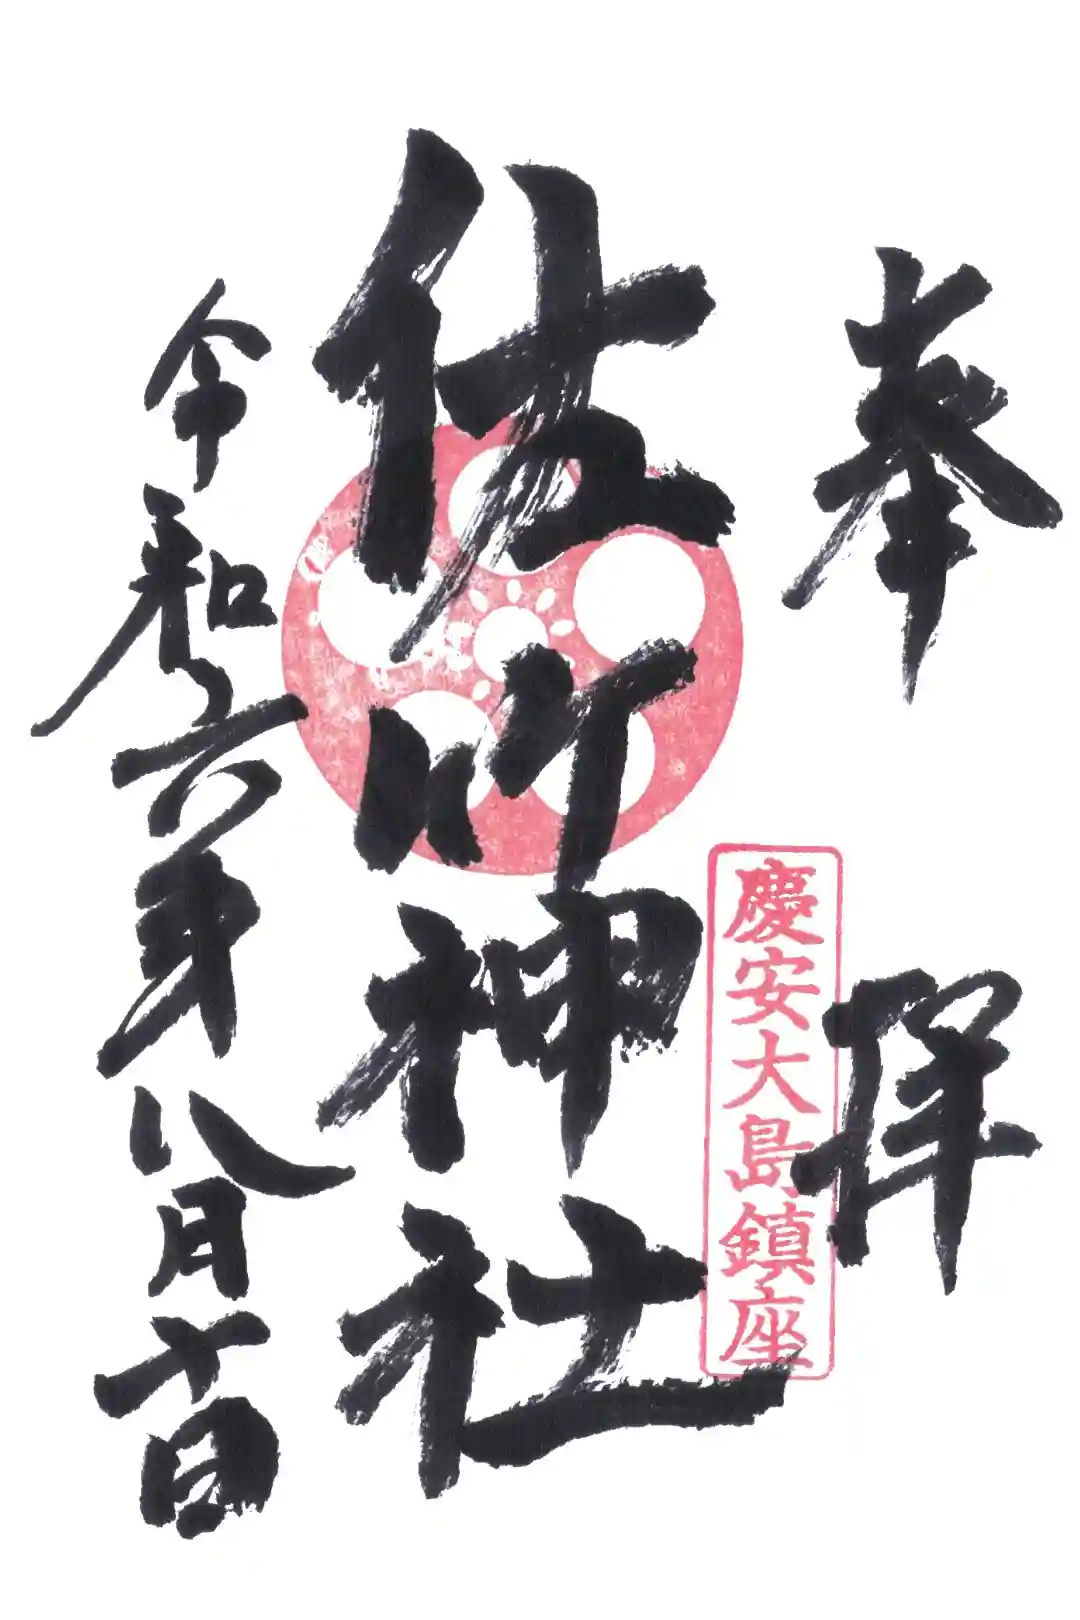 奉拝
慶安大島鎮座
佐 神社
令和六年八月十一日